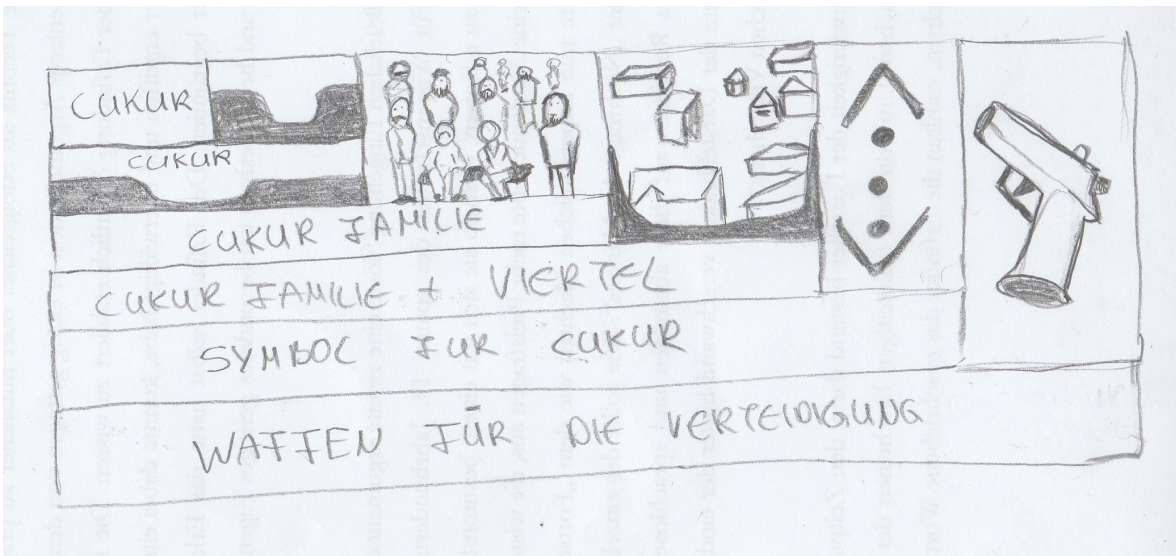 CUKUR
CUKUR
CUKUR FAMILIE
CUKUR FAMILIE + VIERTEL
SYMBOL FUR CUKUR
WAFFEN FÜR DIE VERTEIDIGUNG